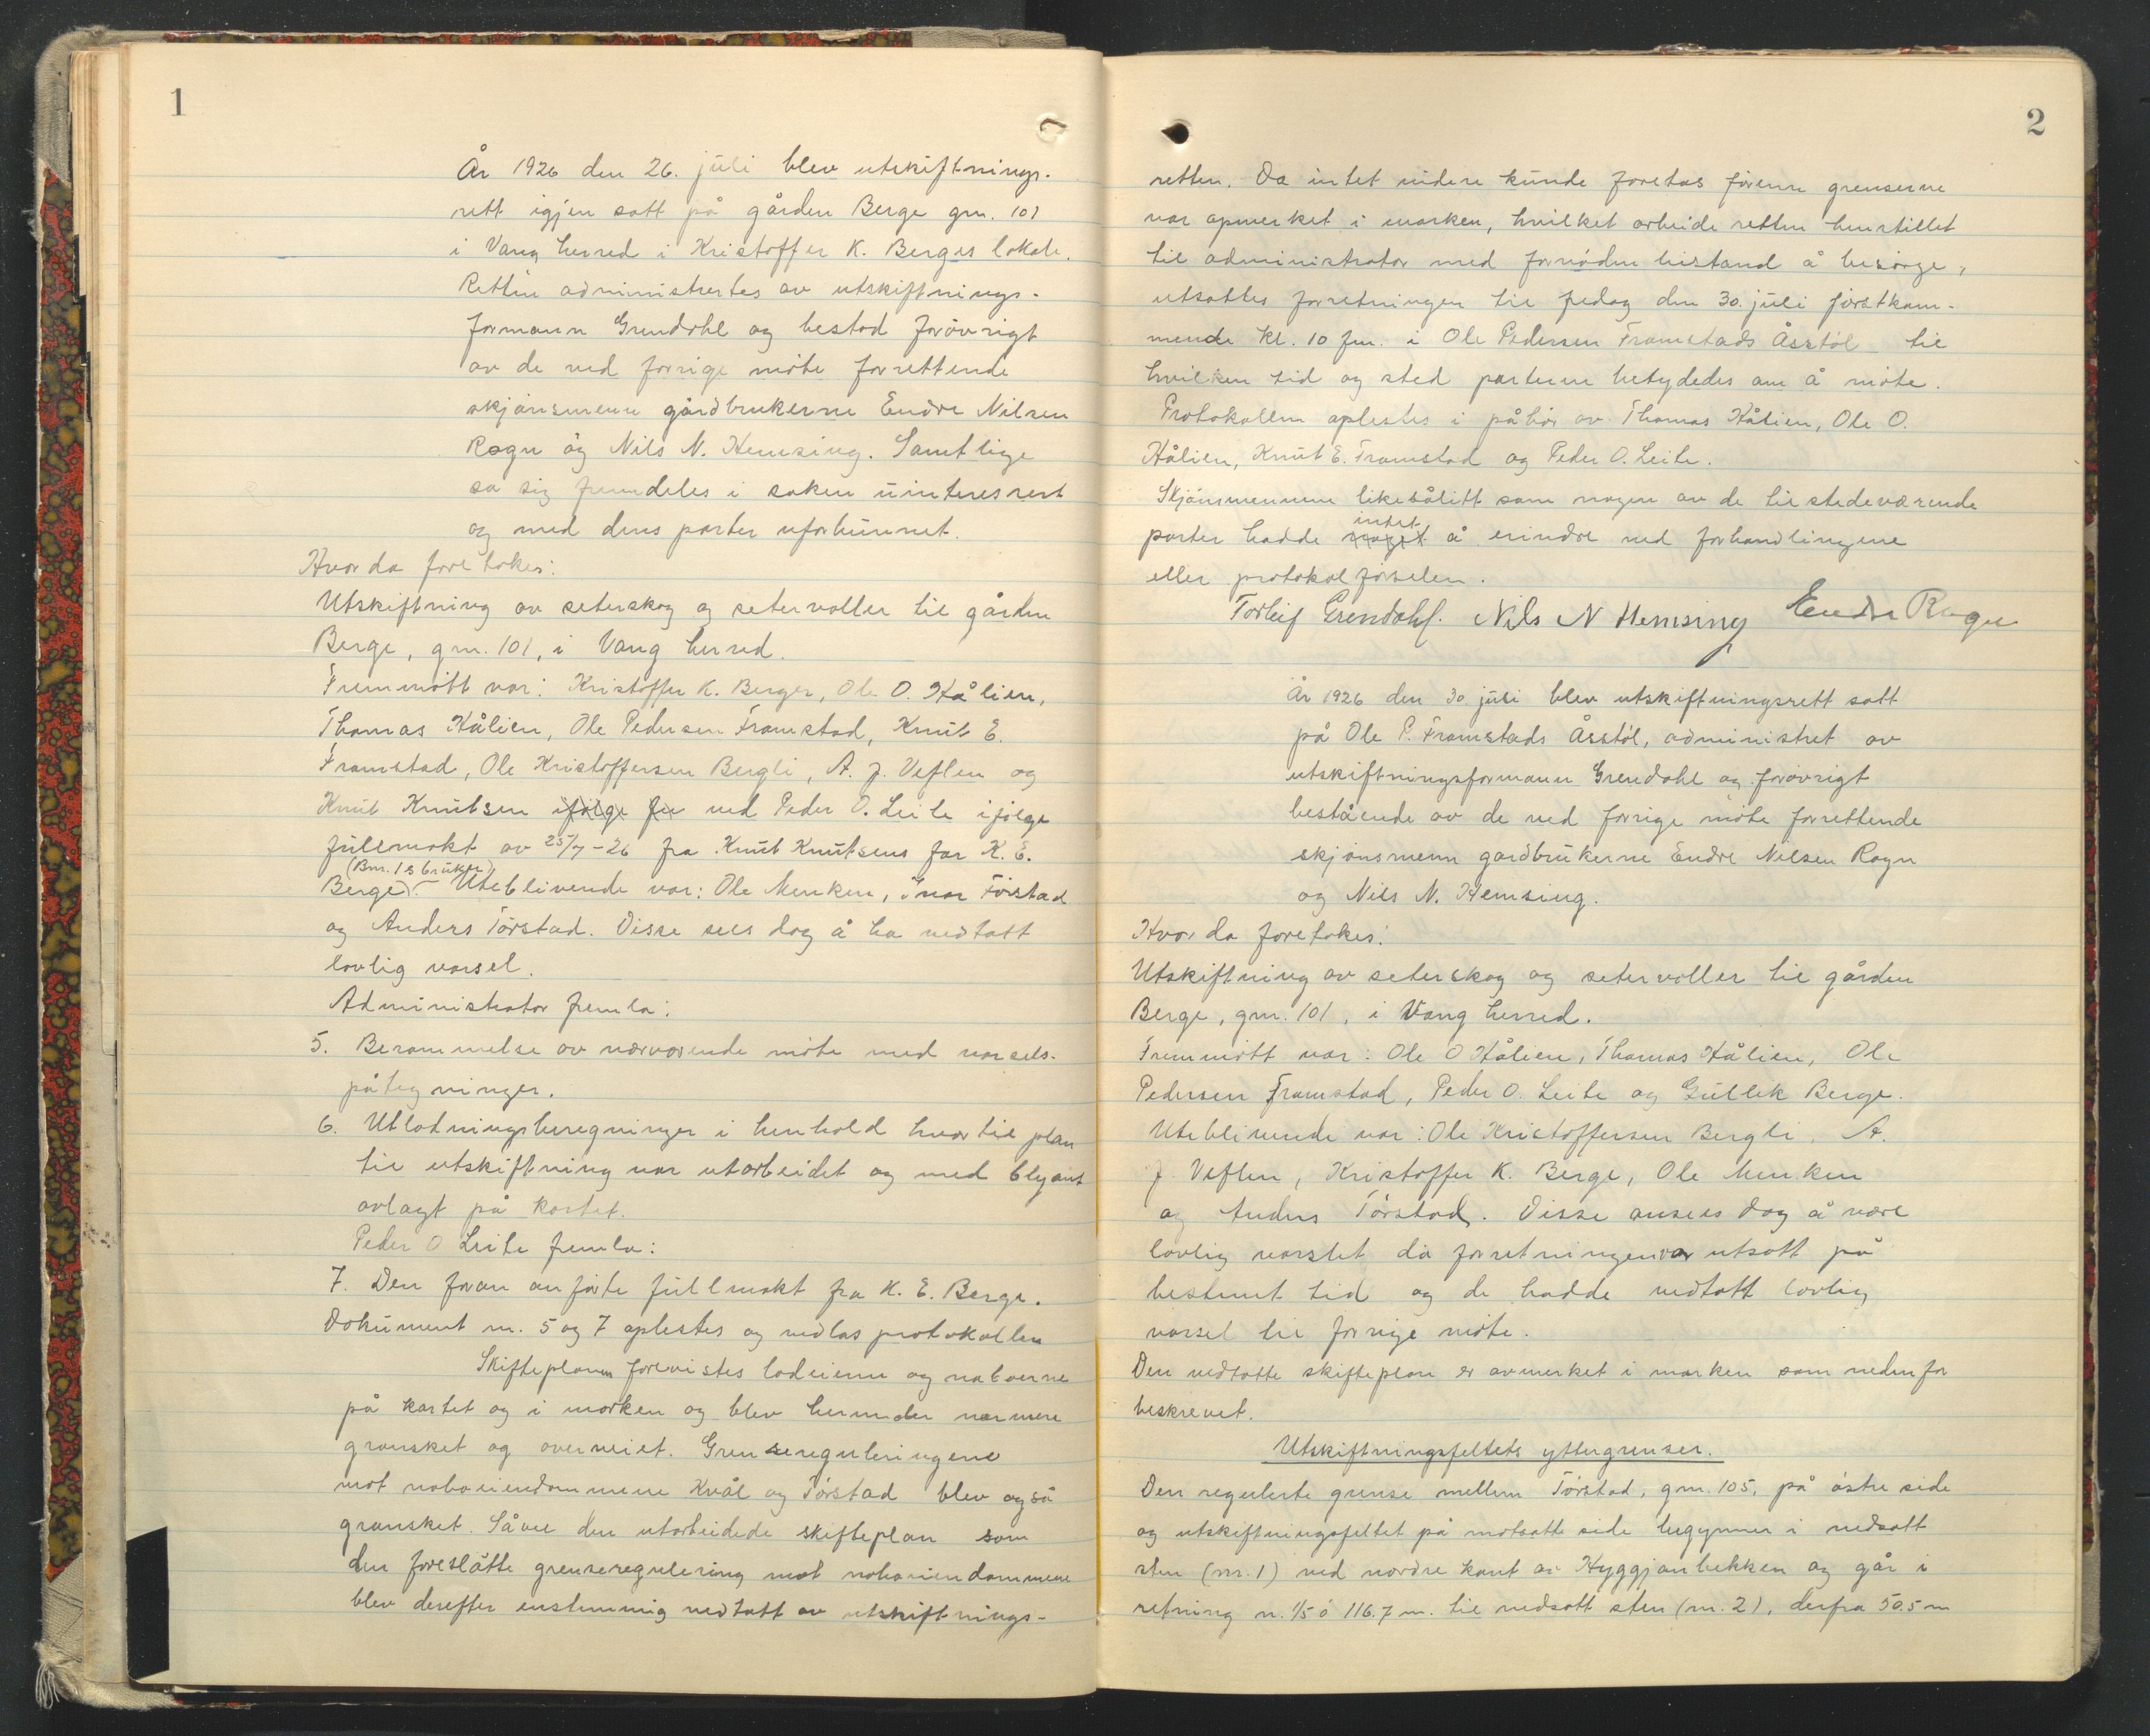 1
År 1926 den 26. juli blev utskiftnings-
rett igjen satt på gården Berge gnr. 101
i Vang herred i Kristoffer K. Berges lokale.
Retten administrertes av utskiftnings-
formann Grendahl og bestod forövrigt
av de ved forrige möte forrettende
skjönsmenn gårdbrukerne Endre Nilsen
Rogn og Nils N. Hemsing. Samtlige
sa sig fremdeles i saken uinteressert
og med dens parter uforbunnet.
Hvor da foretokes:
Utskiftning av seterskog og setervoller til gården
Berge, gnr. 101, i Vang herred.
Fremmött var: Kristoffer K. Berger, Ole O. Hålien,
Thomas Hålien, Ole Pedersen Framstad, Knut E.
Framstad, Ole Kristoffersen Bergli, A. J. Veflen og
Knut Knutsen ifölge fu ved Peder O. Leite ifölge
fullmakt av 25/7-26 fra Knut Knutsens far K. E.
(Bnr. 1s bruker)
Berge). Uteblivende var: Ole Menken, Ivar Törstad
og Anders Törstad. Disse sees dog å ha vedtatt
lovlig varsel.
Administrator fremla:
5. Berammelse av nærværende möte med varsels-
påtegninger.
6. Utlodningsberegninger i henhold hvortil plan
til utskiftning var utarbeidet og med blyant
avlagt på kartet.
Peder O Leite fremla:
7. Den foran anförte fullmakt fra K. E. Berge.
Dokument nr. 5 og 7 oplestes og vedlas protokollen
Skifteplanen forevistes lodeierne og naboerne
på kartet og i marken og blev herunder nærmere
gransket og overveiet. Grensereguleringene
mot naboeiendommene Kvål og Törstad blev også
gransket. Såvel den utarbeidede skifteplan som
den foreslåtte grenseregulering mot naboeiendommene
blev derefter enstemmig vedtatt av utskiftnings-
2
retten. Da intet videre kunde foretas förenn grenserne
var opmerket i marken, hvilket arbeide retten henstillet
til administrator med fornöden bistand å besörge,
utsattes forretningen til fredag den 30. juli förstkom-
mende kl. 10 fm. i Ole Pedersen Framstads Åsstöl til
hvilken tid og sted parterne betydedes om å möte.
Protokollen oplestes i påhör av Thomas Hålien, Ole O.
Hålien, Knut E. Framstad og Peder O. Leite.
Skjönsmennene likesålitt som nogen av de tilstedeværende
intet
parter hadde noget å erindre ved forhandlingene
eller protokolförselen.
Torleif Grendahl. Nils N Hemsing Endre Rogn
År 1926 den 30. juli blev utskiftningsrett satt
på Ole P. Framstads Åsstöl, administret av
utskiftningsformann Grendahl og forövrigt
bestående av de ved forrige möte forrettende
skjönsmenn gardbrukerne Endre Nilsen Rogn
og Nils N. Hemsing.
Hvor da foretokes:
Utskiftning av seterskog og setervoller til gården
Berge, gnr. 101, i Vang herred.
Fremmött var: Ole O Hålien, Thomas Hålien, Ole
Pedersen Framstad, Peder O. Leite og Gullik Berge.
Uteblivende var: Ole Kristoffersen Bergli, A.
J. Veflen, Kristoffer K. Berge, Ole Menken
og Anders Törstad. Disse ansees dog å være
lovlig varslet da forretningen var utsatt på
bestemt tid og de hadde vedtatt lovlig
varsel til forrige möte.
Den vedtatte skifteplan er avmerket i marken som nedenfor
beskrevet.
Utskiftningsfeltets yttergrenser.
Den regulerte grense mellem Törstad, gnr. 105, på östre side
og utskiftningsfeltet på motsatte side begynner i nedsatt
sten (nr. 1) ved nordre kant av Hyggjanbekken og går i
retning n. 1/5 ö 116.7 m. til nedsatt sten (nr. 2), derfra 50.5 m